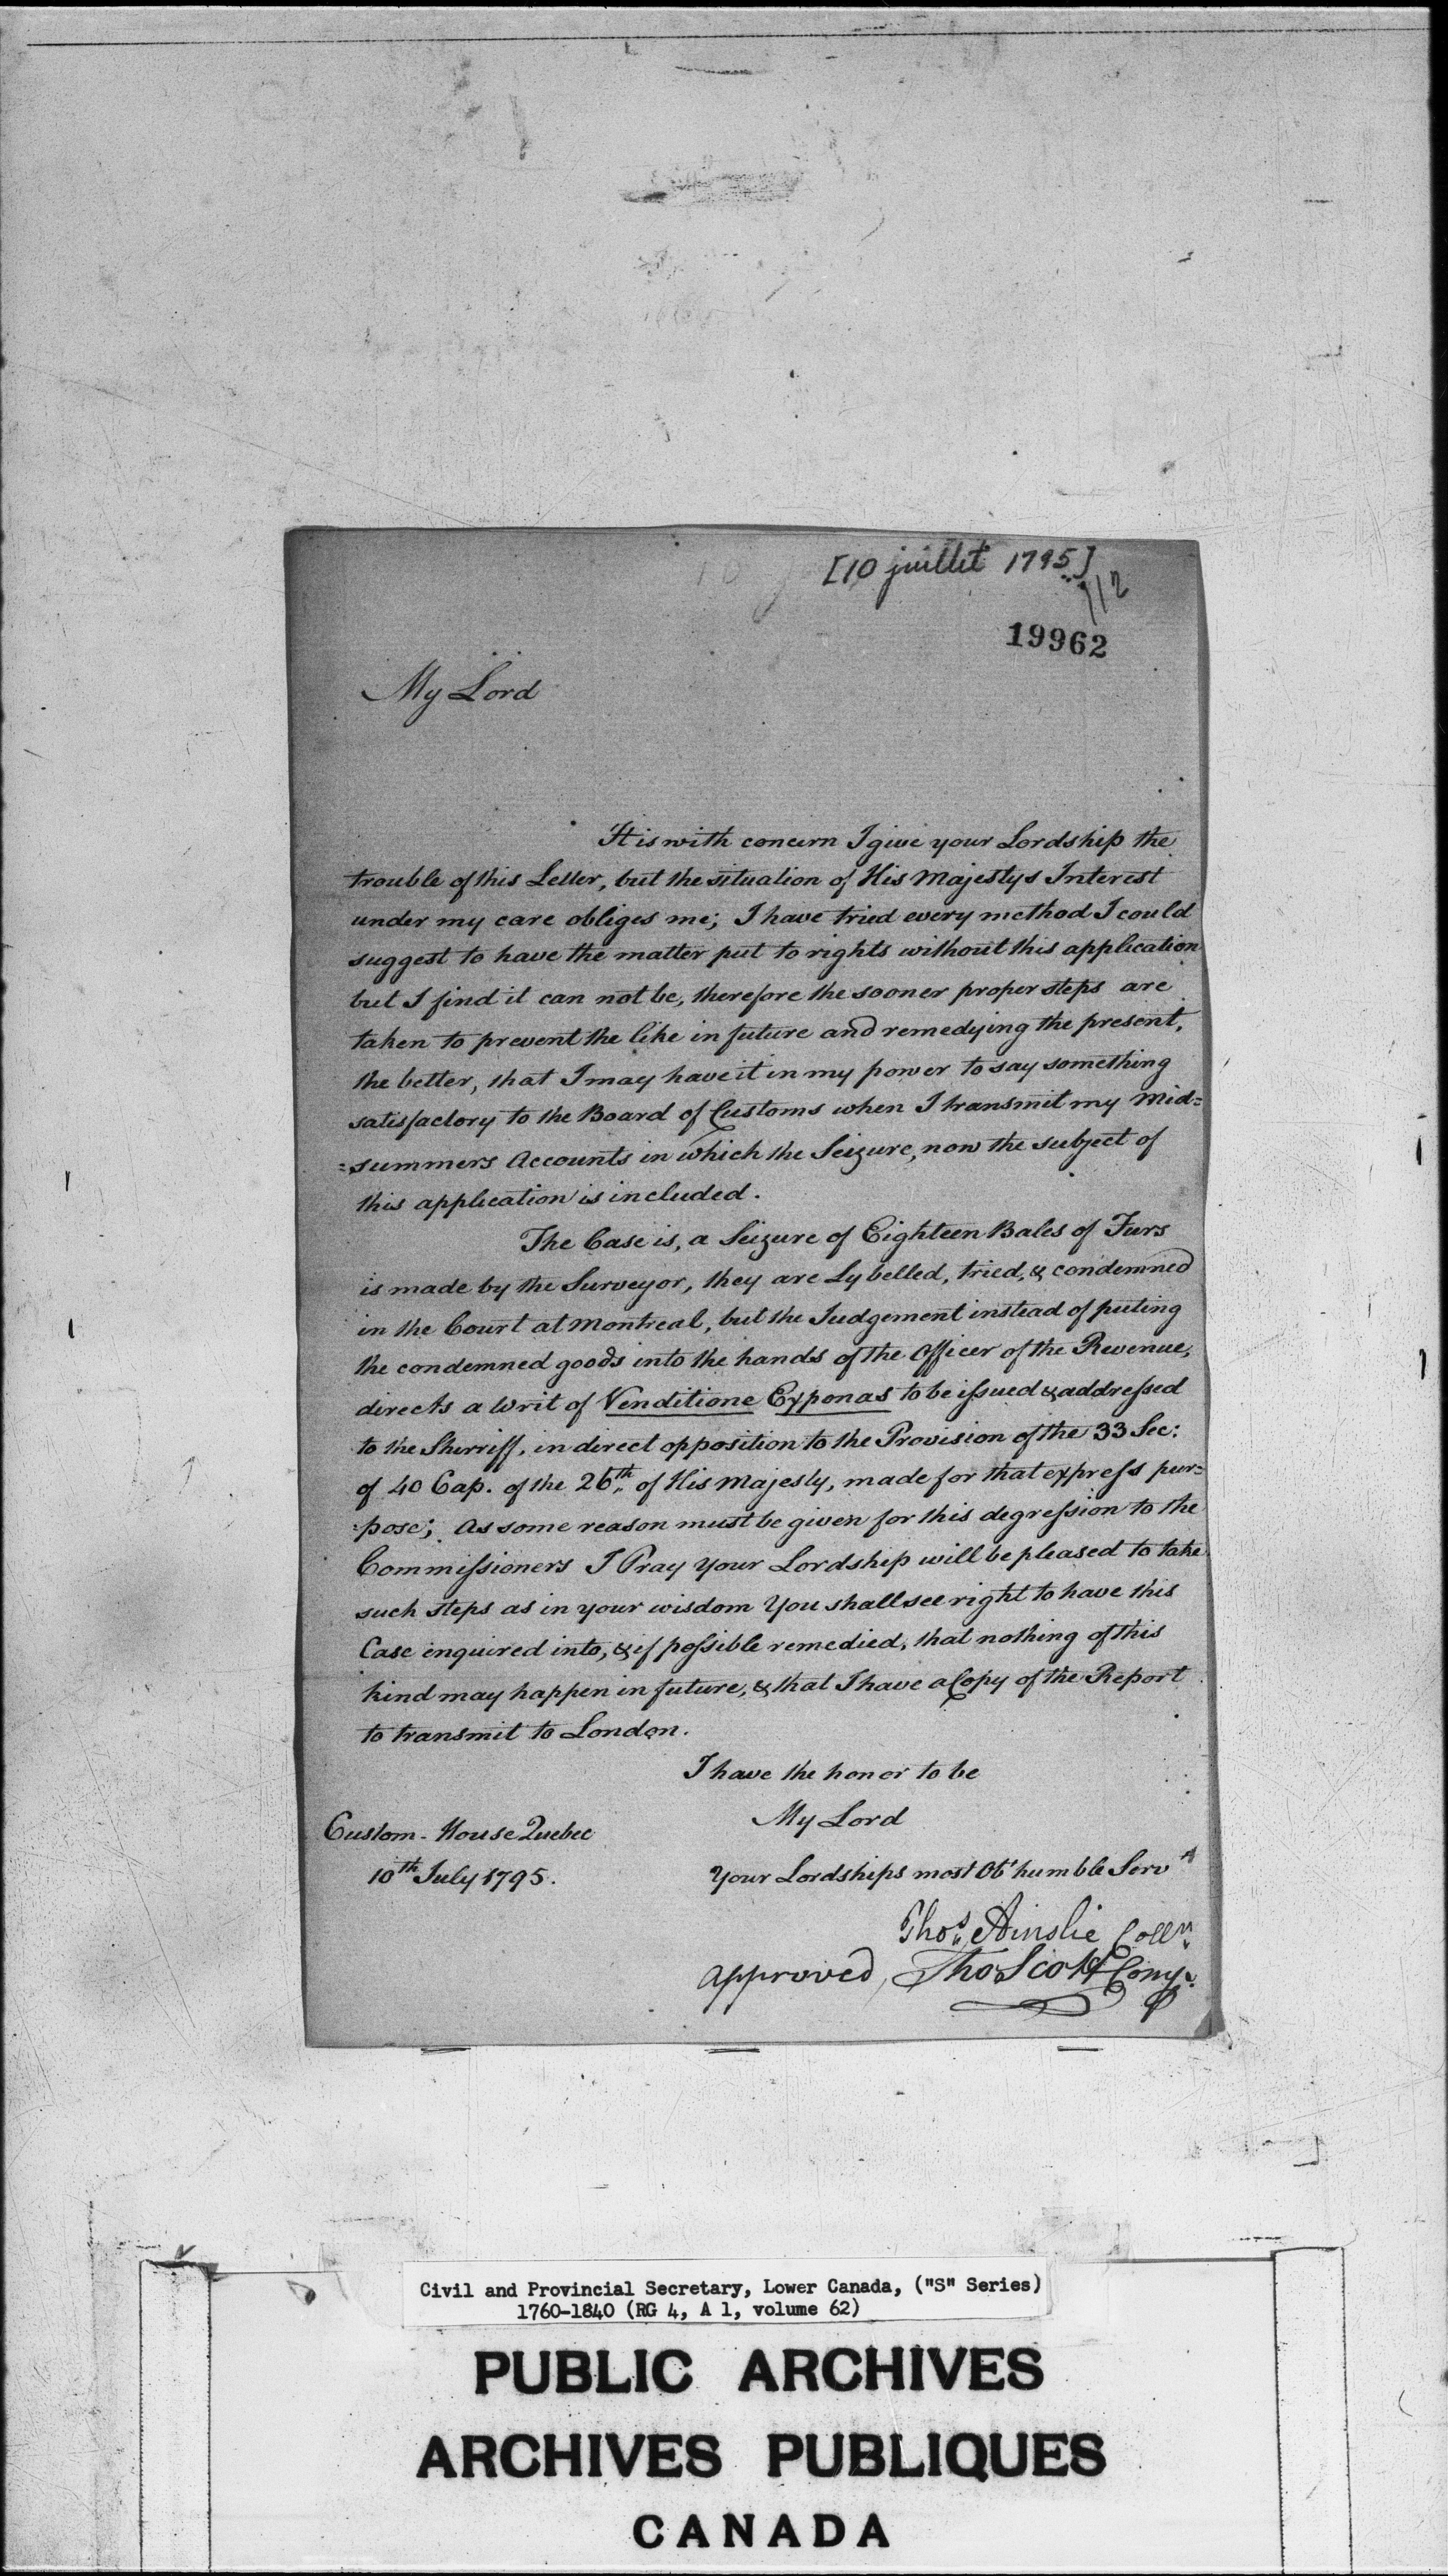 [10 juillet 1795]
112
19962
My Lord
It is with concern I give your Lordship the
trouble of this Letter, but the situation of His Majestys Interest
under my care obliges me; I have tried every method I could
suggest to have the matter put to rights without this application
but I find it can not be, therefore the sooner proper steps are
taken to prevent the like in future and remedying the present,
the better, that I may have it in my power to say something
satisfactory to the Board of Customs when I transmit my Mid=
=summers Accounts in which the Seizure, now the subject of
this application is included.
The Case is, a Seizure of Eighteen Bales of Furs
is made by the Surveyor, they are Lybelled, tried, & condemned
in the Court at Montreal, but the Judgement instead of puting
the condemned goods into the hands of the Officer of the Revenue,
directs a Writ of Venditione Exponas to be issued & addressed
to the Sherriff, in direct opposition to the Provision of the 33 Sec:
of 40 Cap. of the 26th of His Majesty, made for that express pur=
=pose; As some reason must be given for this degression to the
Commissioners I Pray your Lordship will be pleased to take
such steps as in your wisdom You shall see right to have this
Case enquired into, & if possible remedied, that nothing of this
kind may happen in future, & that I have a Copy of the Report
to transmit to London.
I have the honor to be
My Lord
Your Lordships most Obt humble Servt
Custom-House Quebec
10th July 1795.
Thos Ainslie Collr
approved, Tho Scott Comp.
Civil and Provincial Secretary, Lower Canada, ("S" Series)
1760-1840 (RG 4, A 1, volume 62)
PUBLIC ARCHIVES
ARCHIVES PUBLIQUES
CANADA